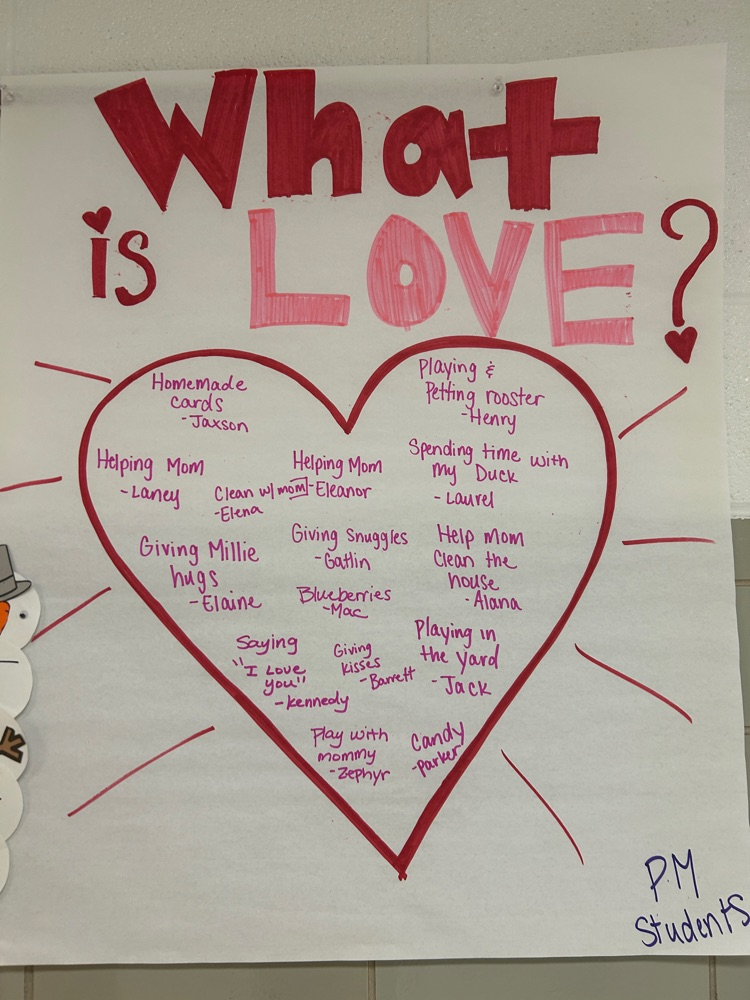 What
is LOVE?
Homemade
cards
- Jaxson
Playing &
Petting rooster
- Henry
Helping Mom
- Laney
Clean w/ mom
- Elena
Helping Mom
- Eleanor
Spending time with
my Duck
- Laurel
Giving Millie
hugs
- Elaine
Giving Snuggles
- Gatlin
Help mom
Clean the
house
- Alana
Blueberries
- Mac
Saying
"I Love
you"
- Kennedy
Giving
kisses
- Barrett
Playing in
the yard
- Jack
Play with
mommy
- Zephyr
Candy
- Parker
PM
Students